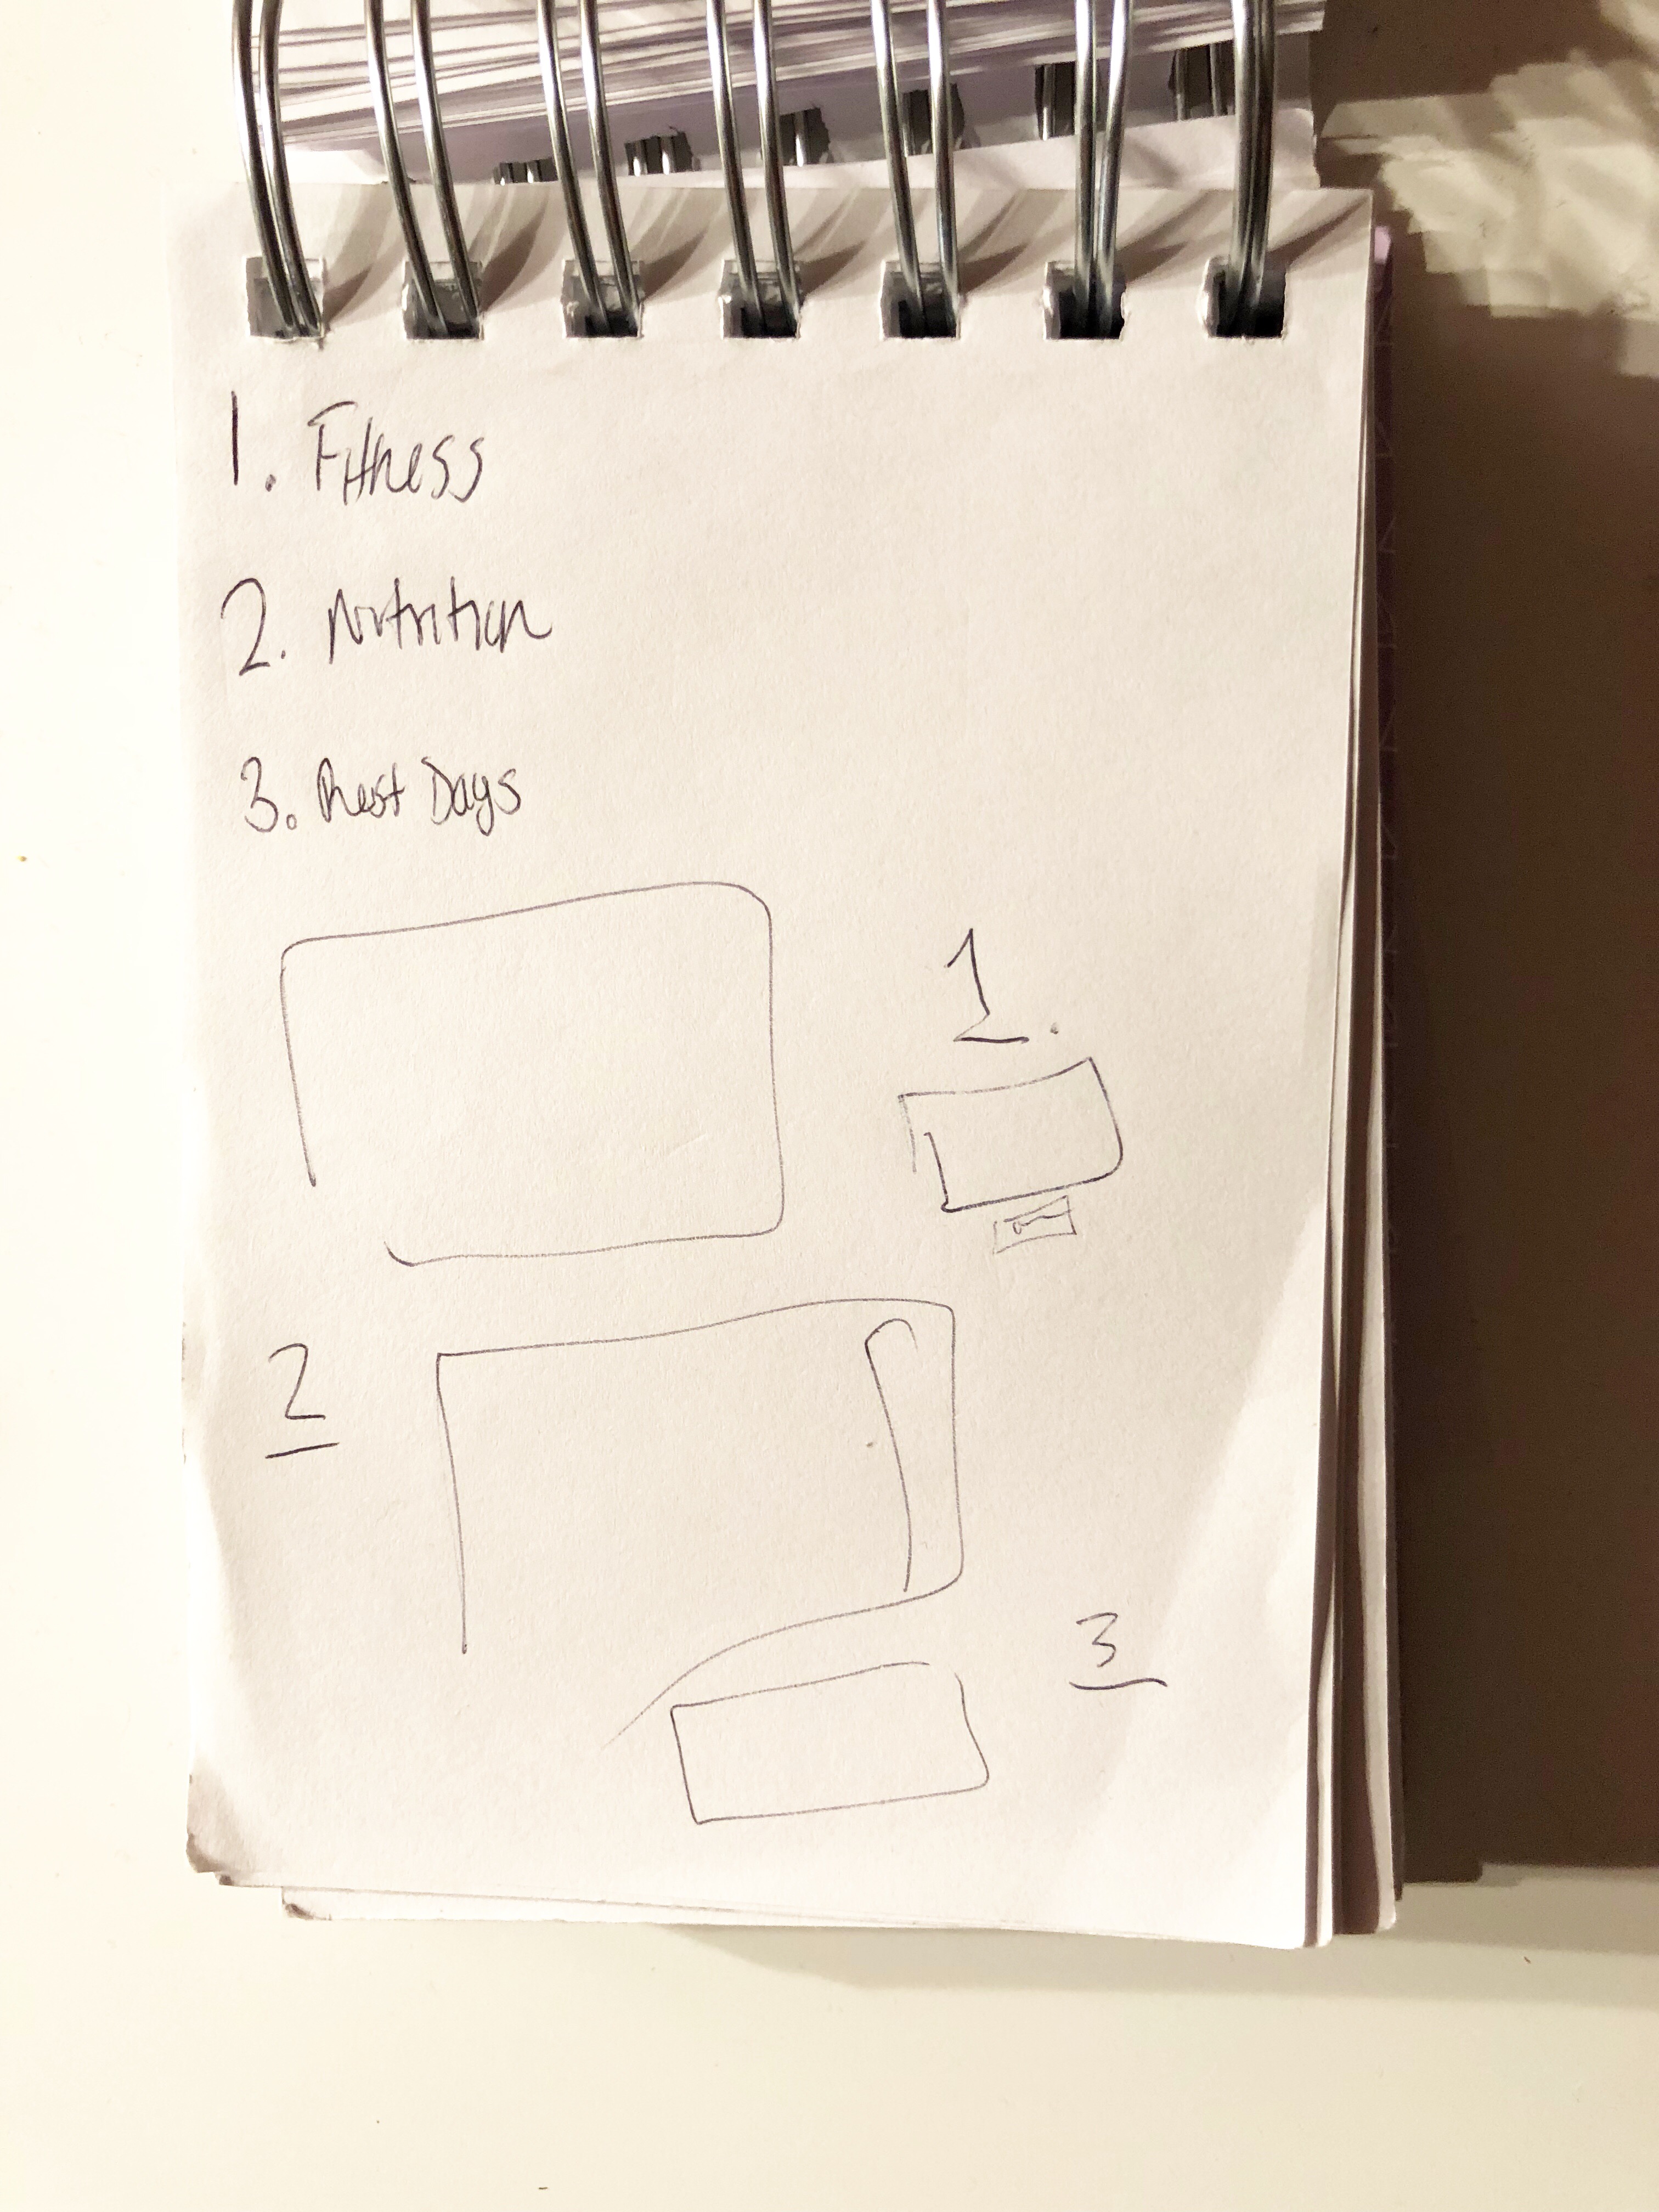 1. Fitness
2. Nutrition
3. Rest Days
1.
2
3